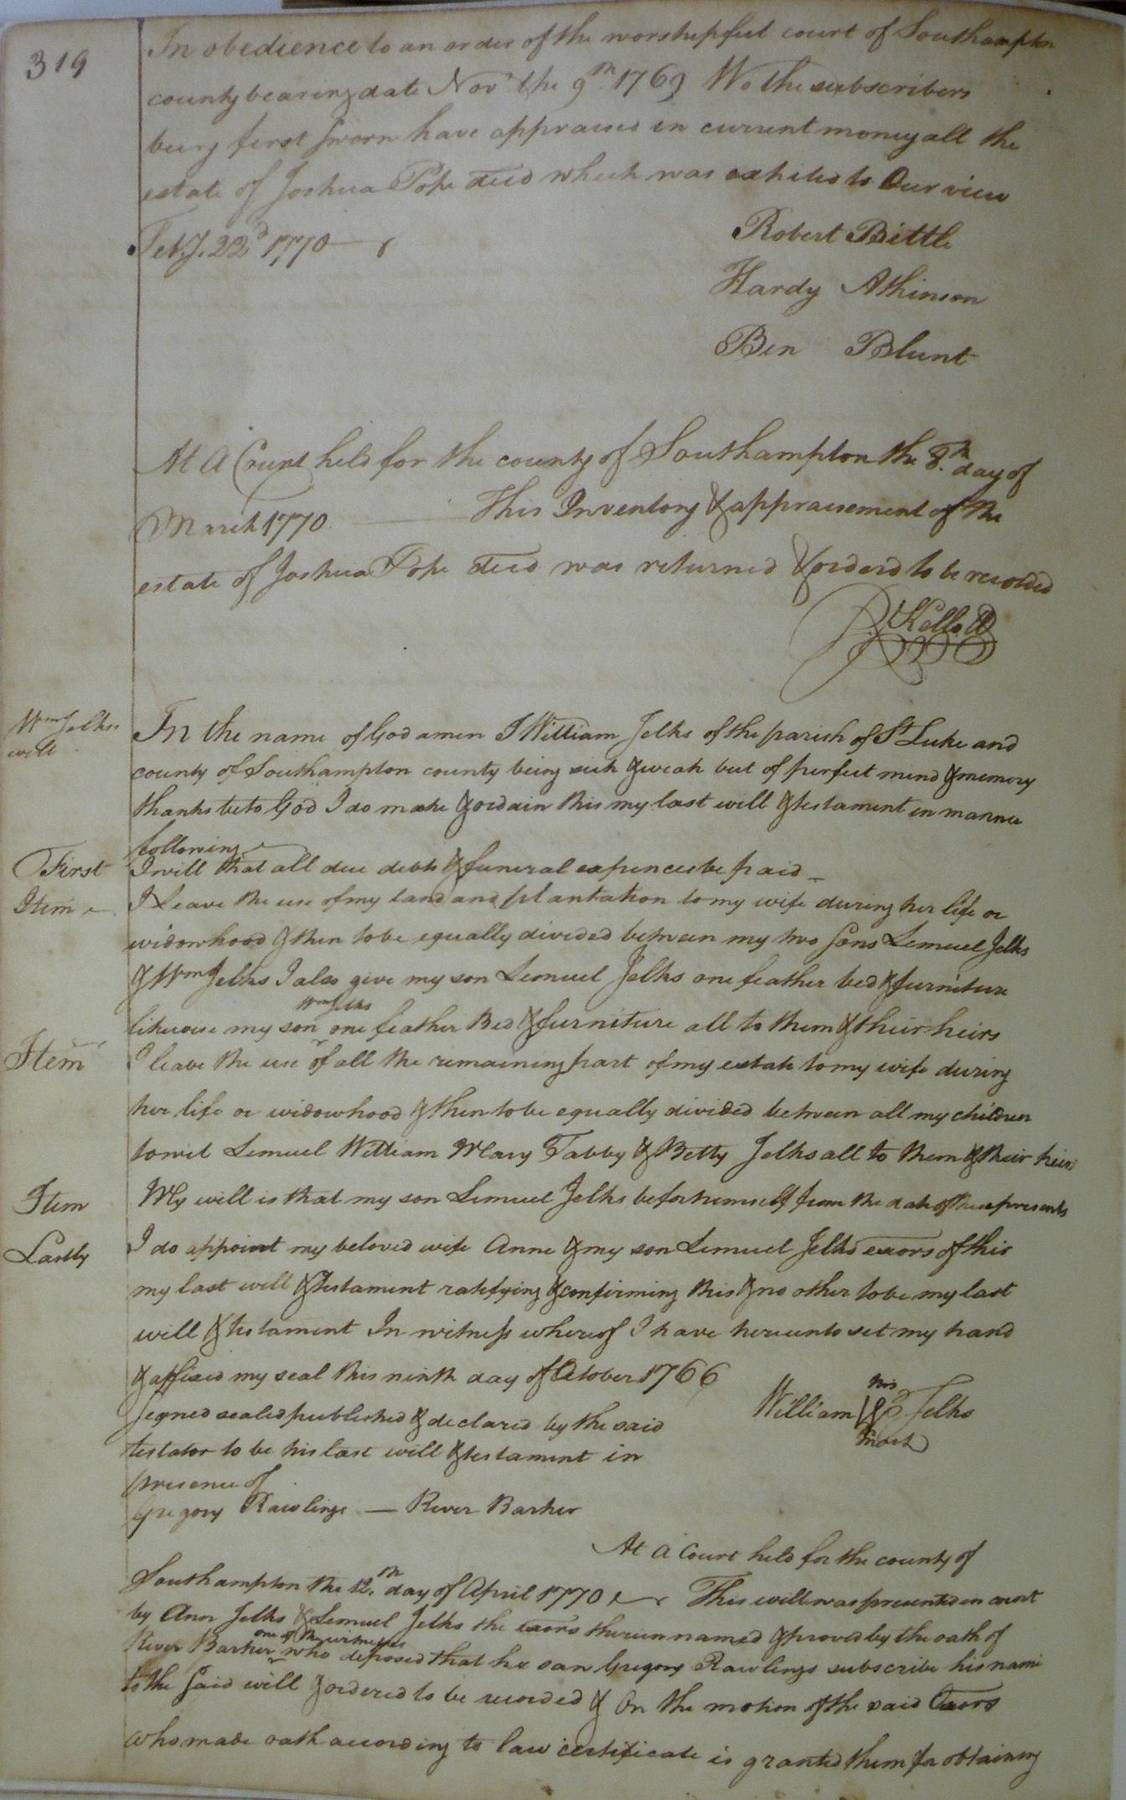 319
In obedience to an order of the worshipfull court of Southampton
county bearing date Novr the 9th 1769 We the subscribers
being first sworn have appraised in current money all the
estate of Joshua Pope decd which was exhited to Our view
Feby. 22d 1770
Robert Bittle
Hardy Atkinson
Ben Blunt
At A Court held for the county of Southampton the 8.th day of
March 1770 This Inventory & appraisement of the
estate of Joshua Pope decd was returned & orderd to be recorded
Wm Jelks
will
In the name of God amen I William Jelks of the parish of St Luke and
county of Southampton county being sick & weak but of perfect mind & memory
thanks be to God I do make & ordain this my last will & testament in manner
following
First I will that all due debts & funeral expences be paid
Item I Leave the use of my land and plantation to my wife during her life or
widowhood & then to be equally divided between my two sons Lemuel Jelks
& Wm Jelks I also give my son Lemuel Jelks one feather bed & furniture
likewise my son Wm Jelks one feather Bed & furniture all to them & their heirs
Item I leave the use of all the remaining part of my estate to my wife during
her life or widowhood & then to be equally divided between all my children
towit Lemuel William Mary Tabby & Betty Jelks all to them & their heirs
Item My will is that my son Lemuel Jelks be for himself from the date of these presents
Lastly I do appoint my beloved wife Anne & my son Lemuel Jelks exors of this
my last will & Testament ratifying & confirming this & no other to be my last
will & testament In witness whereof I have hereunto set my hand
& affixed my seal this ninth day of October 1766
Signed sealed published & declared by the said
William his mark Jelks
testator to be his last will & testament in
presence of
Gregory Rawlings — River Barker
At a Court held for the county of
Southampton the 12.th day of April 1770 This will was presented in court
by Ann Jelks & Lemuel Jelks the exors therein named & proved by the oath of
River Barker one of the witnesses who deposed that he saw Gregory Rawlings subscribe his name
to the said will & ordered to be recorded & On the motion of the said Exors
who made oath according to law certificate is granted them for obtaining